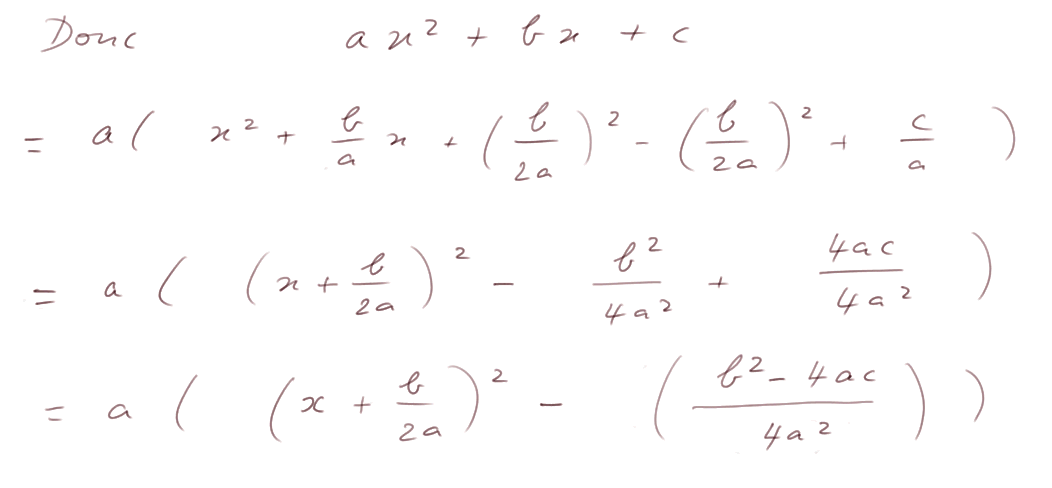 Donc ax² + bx + c
= a( x² + b/a x + (b/2a)² - (b/2a)² + c/a )
= a ( (x + b/2a)² - b²/4a² + 4ac/4a² )
= a ( (x + b/2a)² - (b² - 4ac/4a²) )